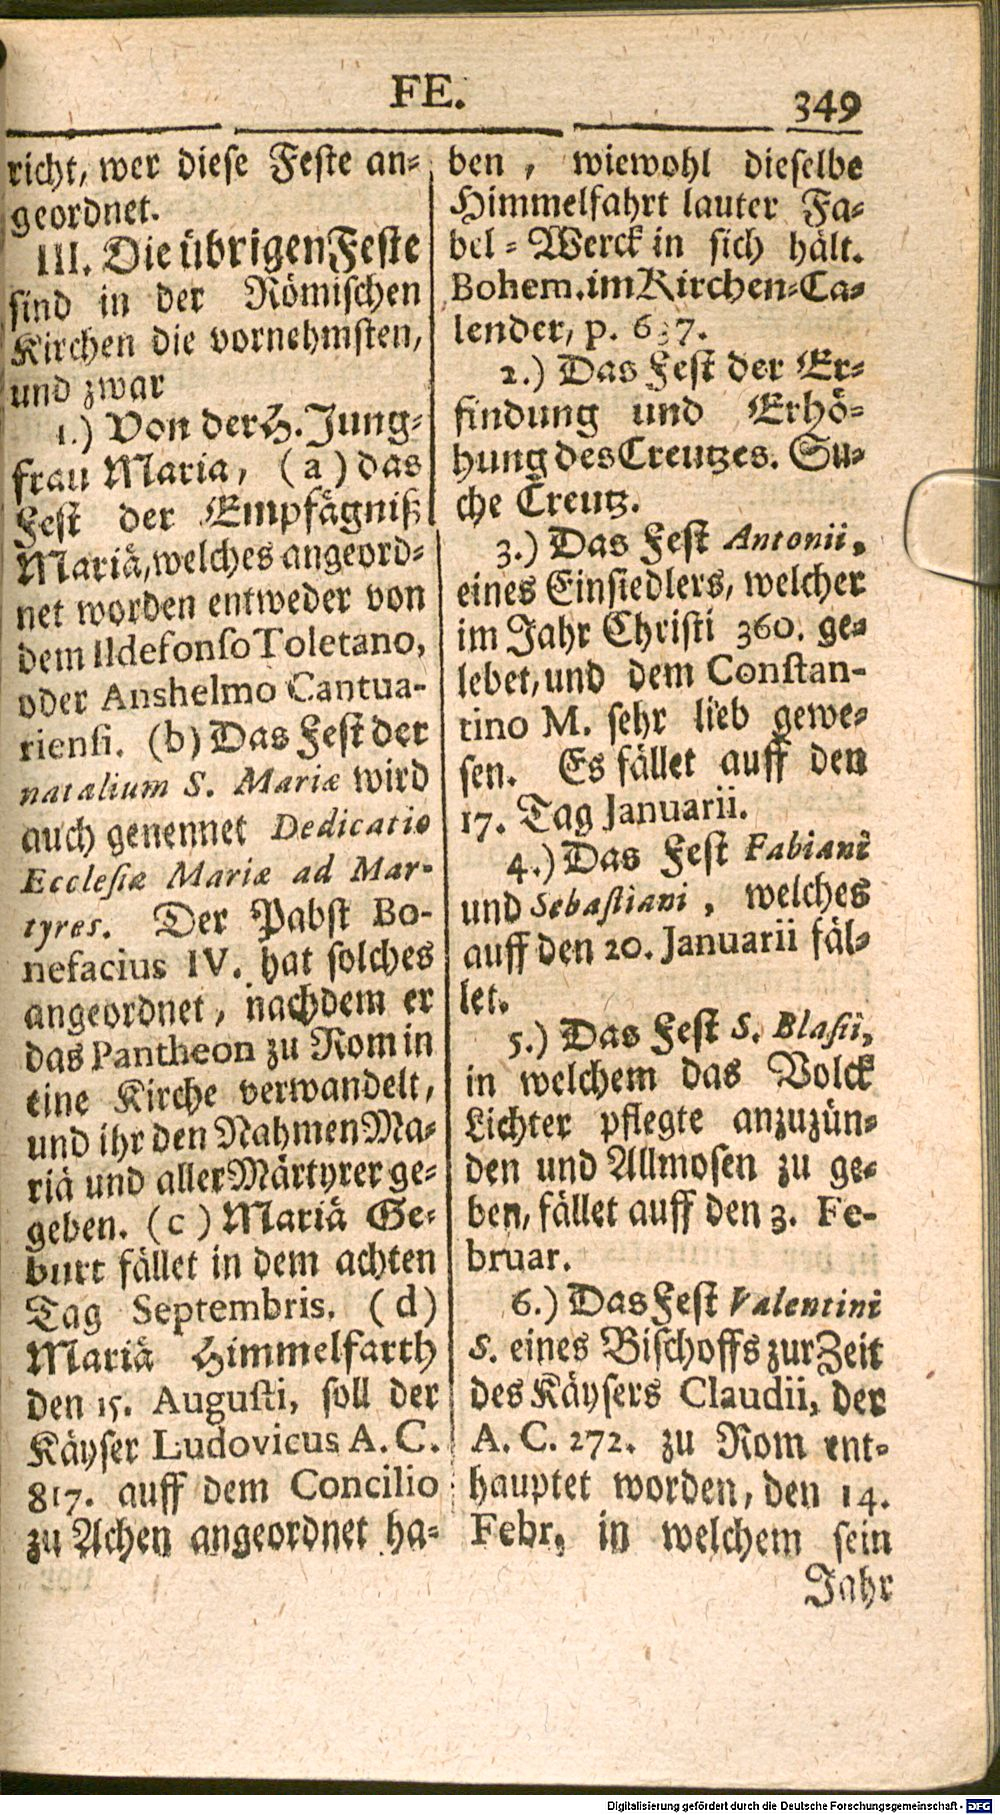 FE.
349
richt, wer diese Feste an-
geordnet.
III. Die übrigen Feste
sind in der Römischen
Kirchen die vornehmsten,
und zwar
1.) Von der H. Jung-
frau Maria, (a) das
Fest der Empfägniß
Mariä, welches angeord-
net worden entweder von
dem Ildefonso Toletano,
oder Anshelmo Cantua-
riensi. (b) Das Fest der
natalium S. Mariæ wird
auch genennet Dedicatio
Ecclesiæ Mariæ ad Mar-
tyres. Der Pabst Bo-
nefacius IV. hat solches
angeordnet, nachdem er
das Pantheon zu Rom in
eine Kirche verwandelt,
und ihr den Nahmen Ma-
riä und aller Märtyrer ge-
geben. (c) Mariä Ge-
burt fället in dem achten
Tag Septembris. (d)
Mariä Himmelfarth
den 15. Augusti, soll der
Käyser Ludovicus A. C.
817. auff dem Concilio
zu Achen angeordnet ha-
ben, wiewohl dieselbe
Himmelfahrt lauter Fa-
bel-Werck in sich hält.
Bohem. im Kirchen-Ca-
lender, p. 637.
2.) Das Fest der Er-
findung und Erhö-
hung des Creutzes. Su-
che Creutz.
3.) Das Fest Antonii,
eines Einsiedlers, welcher
im Jahr Christi 360. ge-
lebet, und dem Constan-
tino M. sehr lieb gewe-
sen. Es fället auff den
17. Tag Januarii.
4.) Das Fest Fabiani
und Sebastiani, welches
auff den 20. Januarii fäl-
let.
5.) Das Fest S. Blasii,
in welchem das Volck
Lichter pflegte anzuzün-
den und Allmosen zu ge-
ben, fället auff den 3. Fe-
bruar.
6.) Das Fest Valentini
S. eines Bischoffs zur Zeit
des Käysers Claudii, der
A. C. 272. zu Rom ent-
hauptet worden, den 14.
Febr. in welchem sein
Jahr
Digitalisierung gefördert durch die Deutsche Forschungsgemeinschaft - DFG